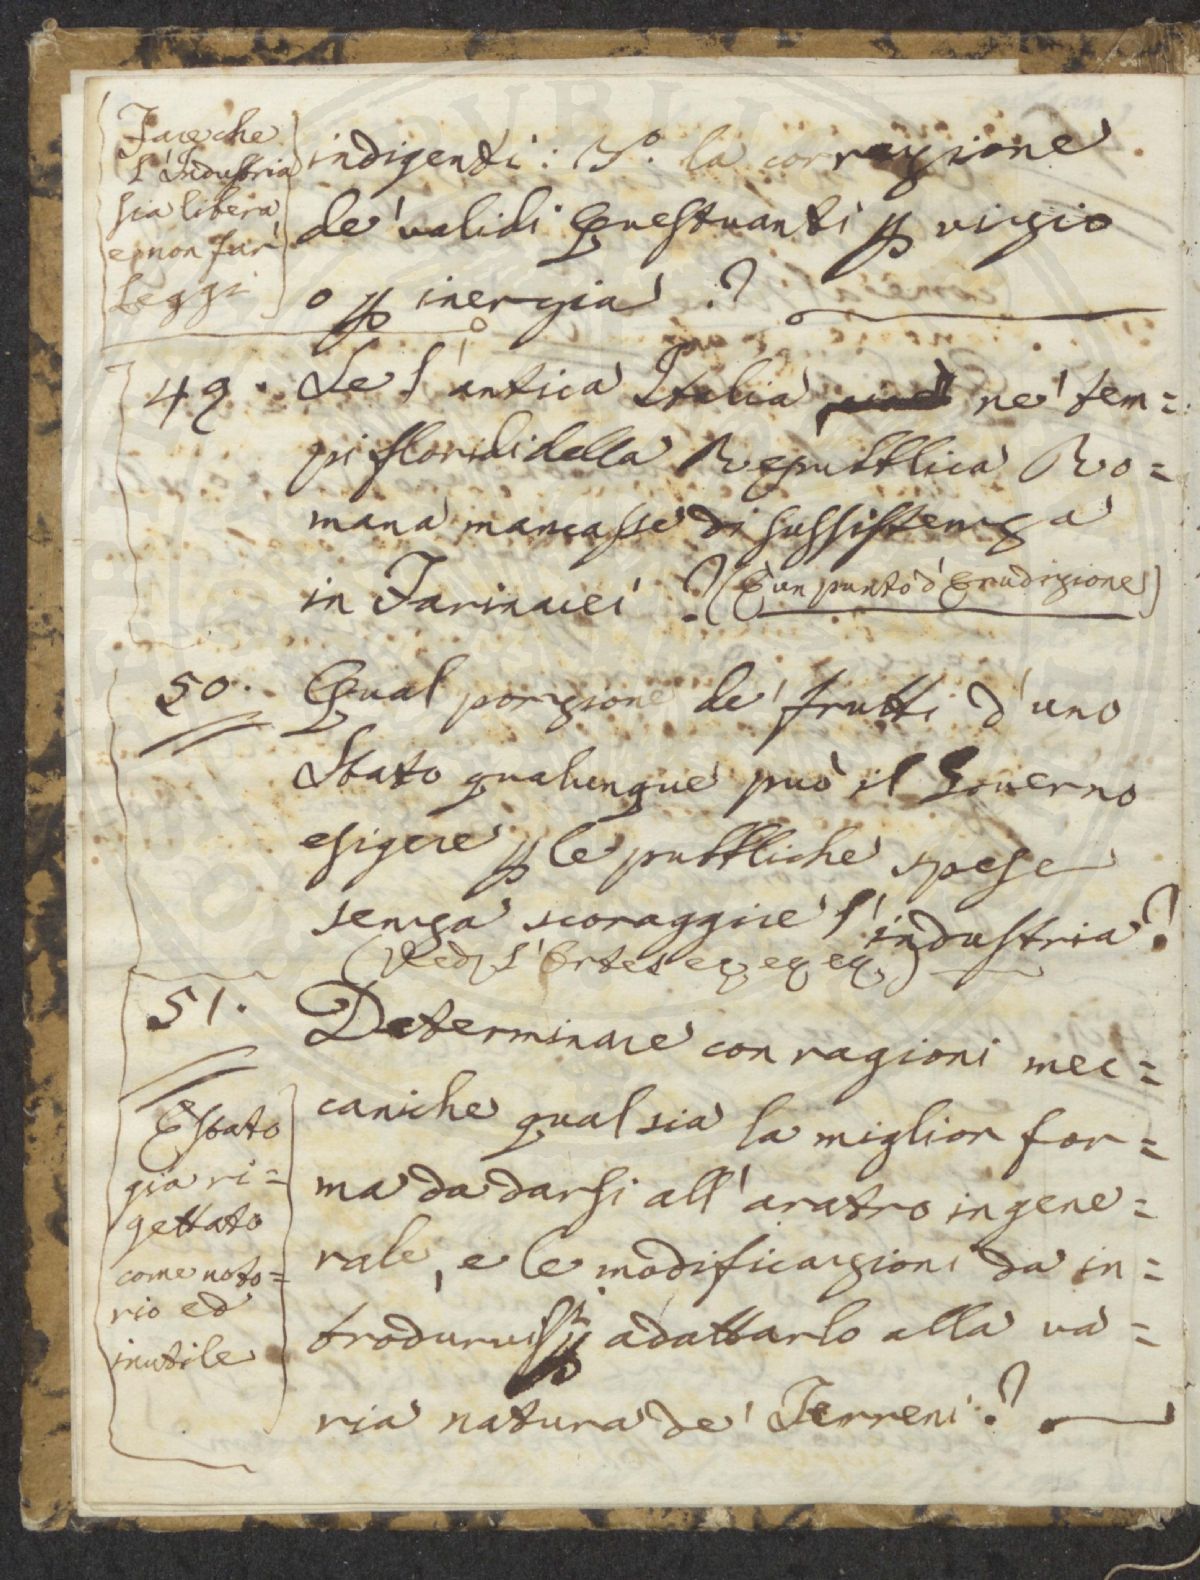 Fare che
l'Industria
sia libera
e non far
Leggi
indigenti: 3.º la correzione
de' validi Questuanti p vizio
o p inerzia?
49. Se l'antica Italia ne' tem=
pi floridi della Repubblica Ro=
mana mancasse di sussistenza
in Farinacei? (È un punto d'Erudizione)
50. Qual porzione de' frutti d'uno
Stato qualunque può il Governo
esigere p le pubbliche spese
senza scoraggire l'industria?
(Ved. l'Ortes
51. Determinare con ragioni mec=
caniche qual sia la miglior for=
ma da darsi all'aratro in gene=
rale, e le modificazioni da in=
trodurvisi p adattarlo alla va=
ria natura de' Terreni?
È stato
già ri=
gettato
come noto=
rio ed
inutile